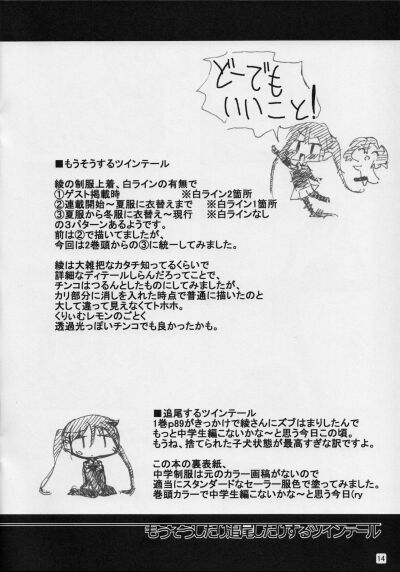 どーでもいいことどーん!
■もうそうするツインテール
綾の制服上着、白ラインの有無で
①ゲスト掲載時　※白ライン2箇所
②連載開始～夏服に衣替えまで　※白ライン1箇所
③夏服から冬服に衣替え～現行　※白ラインなし
の3パターンあるようです。
前は②で描いてましたが、
今回は2巻頭からの③に統一してみました。
綾は大雑把なカタチ知ってるくらいで
詳細なディテールしらんだろってことで、
チンコはつるんとしたものにしてみましたが、
カリ部分に消しを入れた時点で普通に描いたのと
大して違って見えなくてトホホ。
くりいむレモンのごとく
透過光っぽいチンコでも良かったかも。
■追尾するツインテール
1巻p89がきっかけで綾さんにズブはまりしたんで
もっと中学生編こないかな～と思う今日この頃。
もうね、捨てられた子犬状態が最高すぎな訳ですよ。
この本の裏表紙、
中学制服は元のカラー画稿がないので
適当にスタンダードなセーラー服色で塗ってみました。
巻頭カラーで中学生編こないかな～と思う今日(ry
もうそうしたり追尾したりするツインテール
14